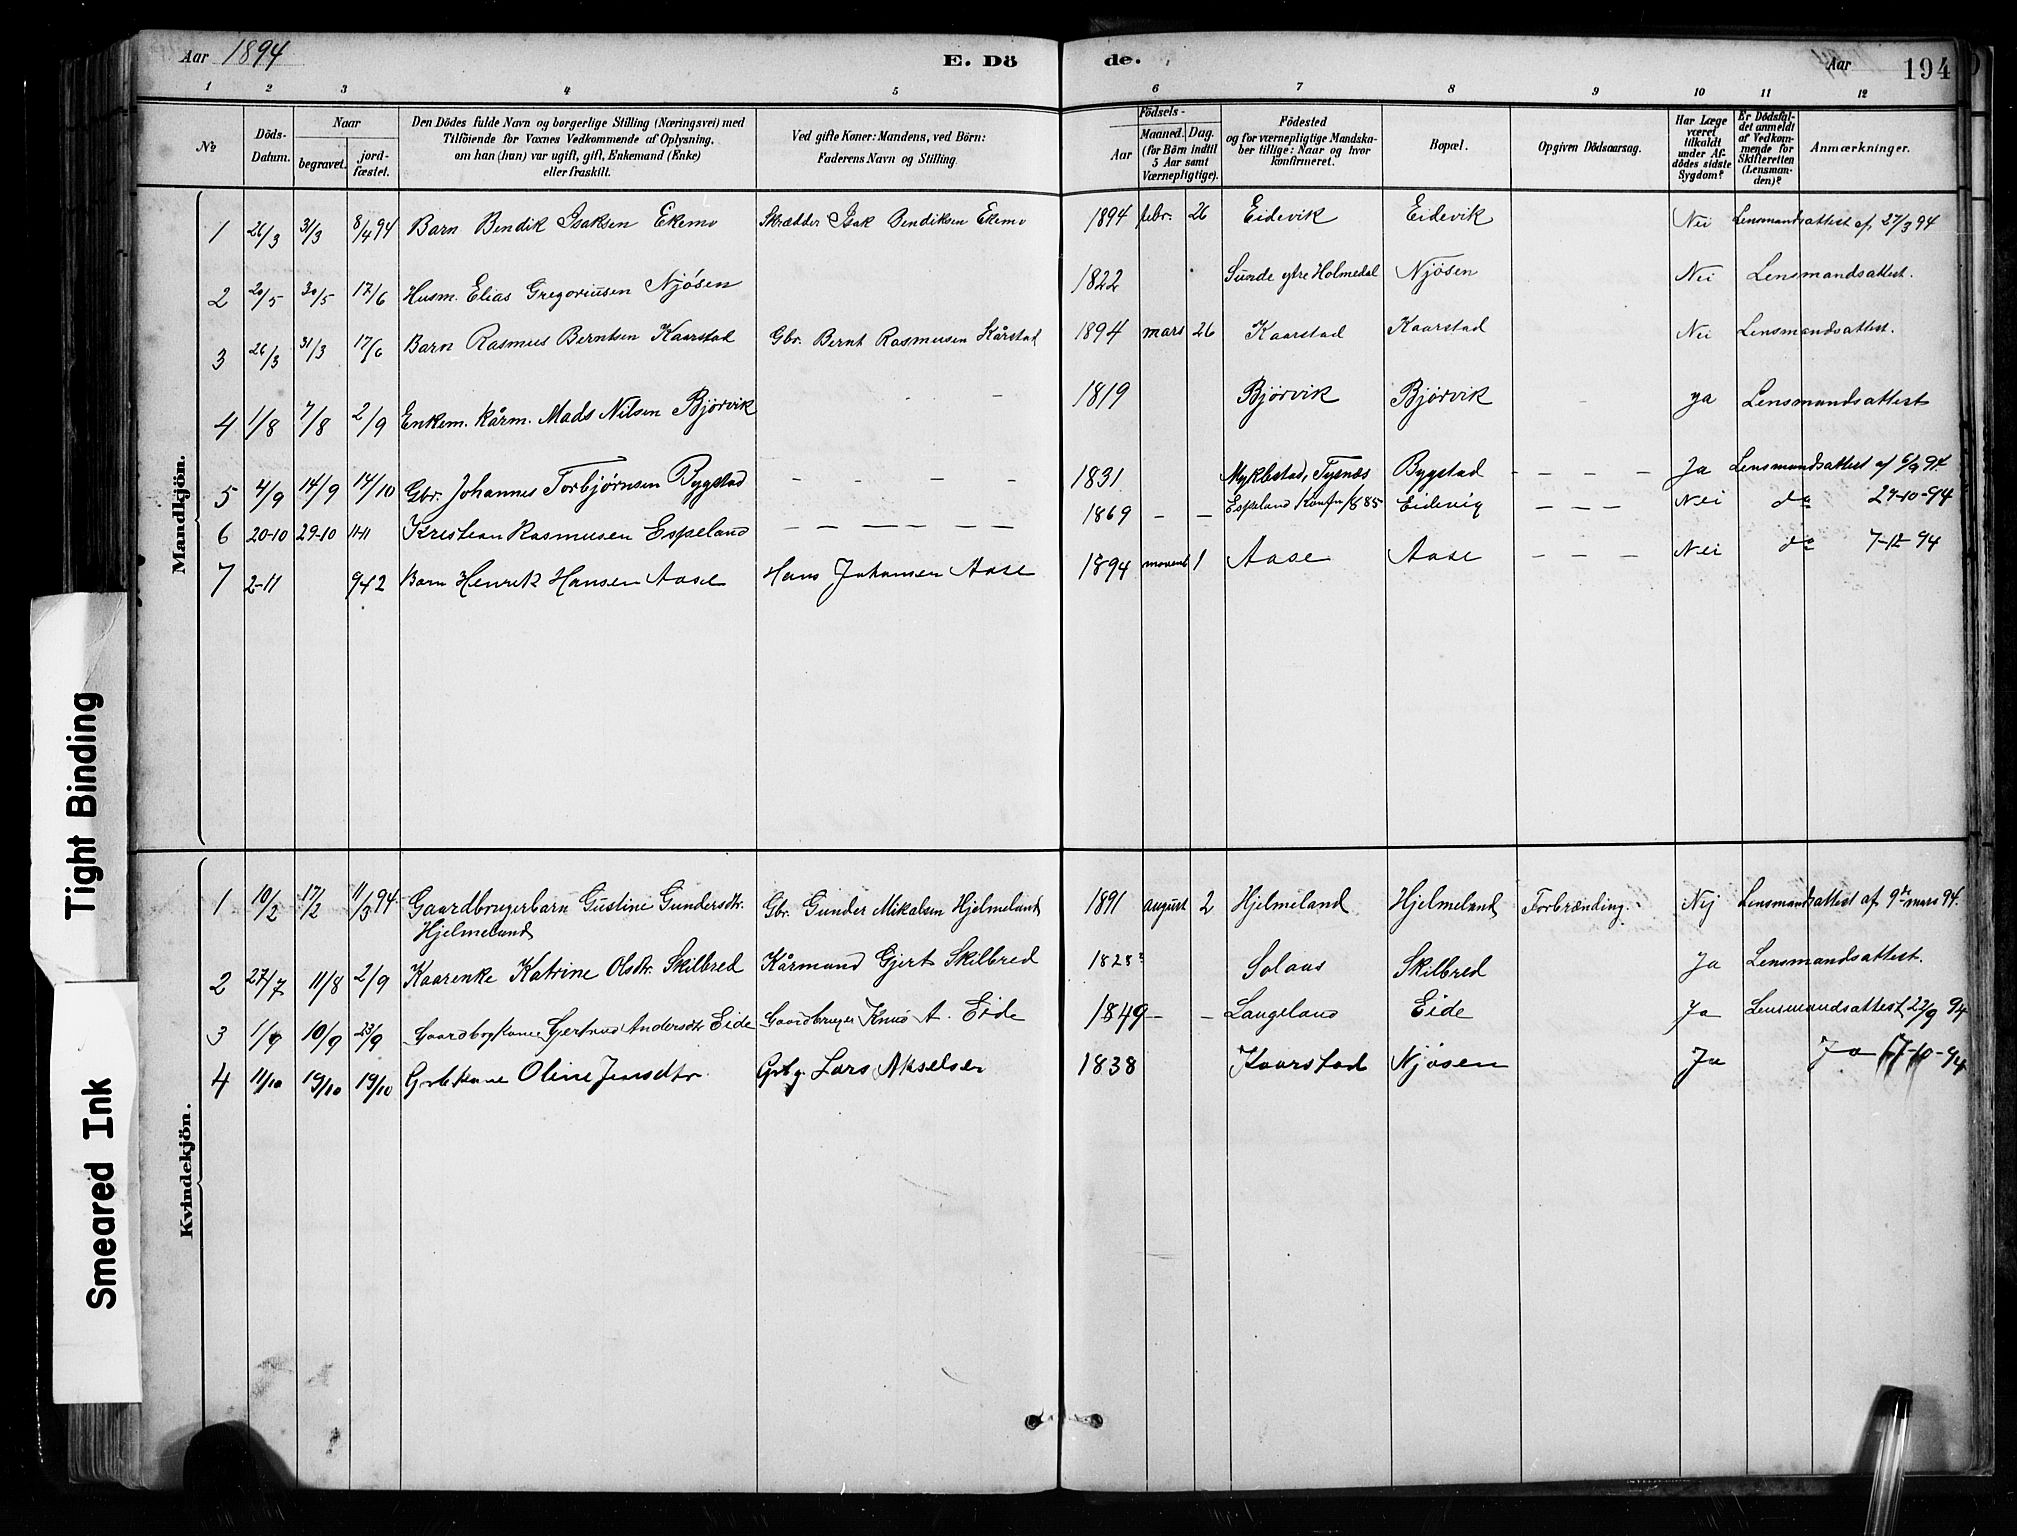 Aar 1894
E. Dö
de.
Aar
194
1 2 3 4 5 6 7 8 9 10 11 12
№
Döds-
Datum.
Naar
begravet.
jord-
fæstet.
Den Dödes fulde Navn og borgerlige Stilling (Næringsvei) med
Tilföiende for Voxnes Vedkommende af Oplysning,
om han (hun) var ugift, gift, Enkemand (Enke)
eller fraskilt.
Ved gifte Koner: Mandens, ved Börn:
Faderens Navn og Stilling
Födsels-
Aar
Maaned. Dag.
(for Börn indtil
5 Aar samt
Værnepligtige).
Födested
og for værnepligtige Mandska-
ber tillige: Naar og hvor
konfirmeret.
Bopæl.
Opgiven Dödsaarsag.
Har Læge
været
tilkaldt
under Af-
dödes sidste
Sygdom?
Er Dödsfal-
det anmeldt
af Vedkom-
mende for
Skifteretten
(Lensman-
den)?
Anmærkninger.
Mandkjön.
1 26/3 31/3 8/4 94 Barn Bendik Isaksen Ekemo Skrædder Isak Bendiksen Ekemo 1894 febr. 26 Eidevik Eidevik Nei Lensmandsattest af 27/3 94
2 20/5 30/5 17/6 Husm. Elias Gregoriusen Njøsen 1822 Sunde ytre Holmedal Njøsen Nei Lensmandsattest.
3 26/3 31/3 17/6 Barn Rasmus Berntsen Kaarstad Gbr. Bernt Rasmusen Kårstad 1894 mars 26 Kaarstad Kaarstad Nei Lensmandsattest.
4 1/8 7/8 2/9 Enkem. kårm. Mads Nilsen Bjørvik 1819 Bjørvik Bjørvik ja Lensmandsattest
5 4/9 14/9 14/10 Gbr. Johannes Torbjørnsen Bygstad - - - - 1831 Myklestad, Tysnæs Bygstad - - - - Ja Lensmandsattest af 6/9 94
6 20-10 29-10 11-11 Kristian Rasmusen Espeland - - - - - - 1869 - - Espeland Konf. 85 Eidevig - - - Nei do 27-10-94
7 2-11 942 Barn Henrik Hansen Aase Hans Johansen Aase 1894 novemb 1 Aase Aase - - - Nei do 7-12 94
Kvindekjön.
1 10/2 17/2 11/3 94 Gaardbrugerbarn Gustine Gundersdtr. Gbr. Gunder Mikalsen Hjelmeland 1891 august 2 Hjelmeland Hjelmeland Forbrænding. Nej Lensmandsattest af 9de mars 94.
Hjelmeland
2 27/7 11/8 2/9 Kaarenke Katrine Olsdtr. Skilbred Kårmand Gjert Skilbred 1828? Solaas Skilbred Ja Lensmandsattest.
3 1/9 10/9 23/9 Gaardbrkone Gjertrud Andersdtr Eide Gaardbruger Knud A. Eide 1849 - - Langeland Eide Ja Lensmandsattest 22/9 94
4 11/10 19/10 19/10 Grbkone Oline Jensdtr. Grbg. Lars Akselsen 1838 Kaarstad Njøsen Ja Ja 17-10-94
Tight Binding
Smeared Ink